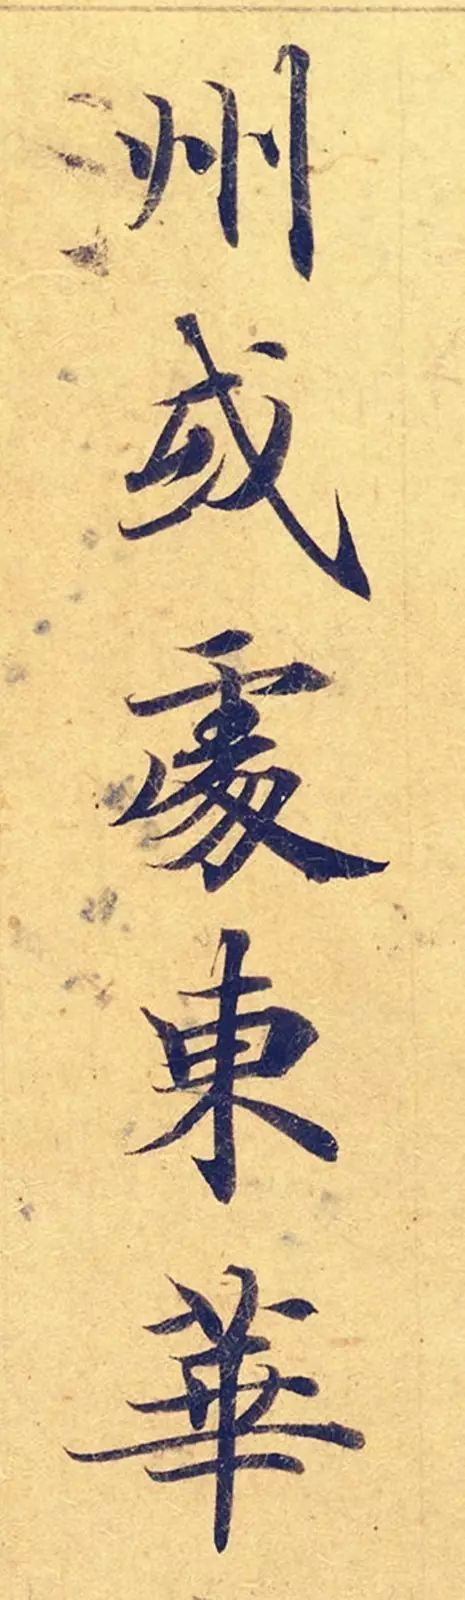 洲或處東華